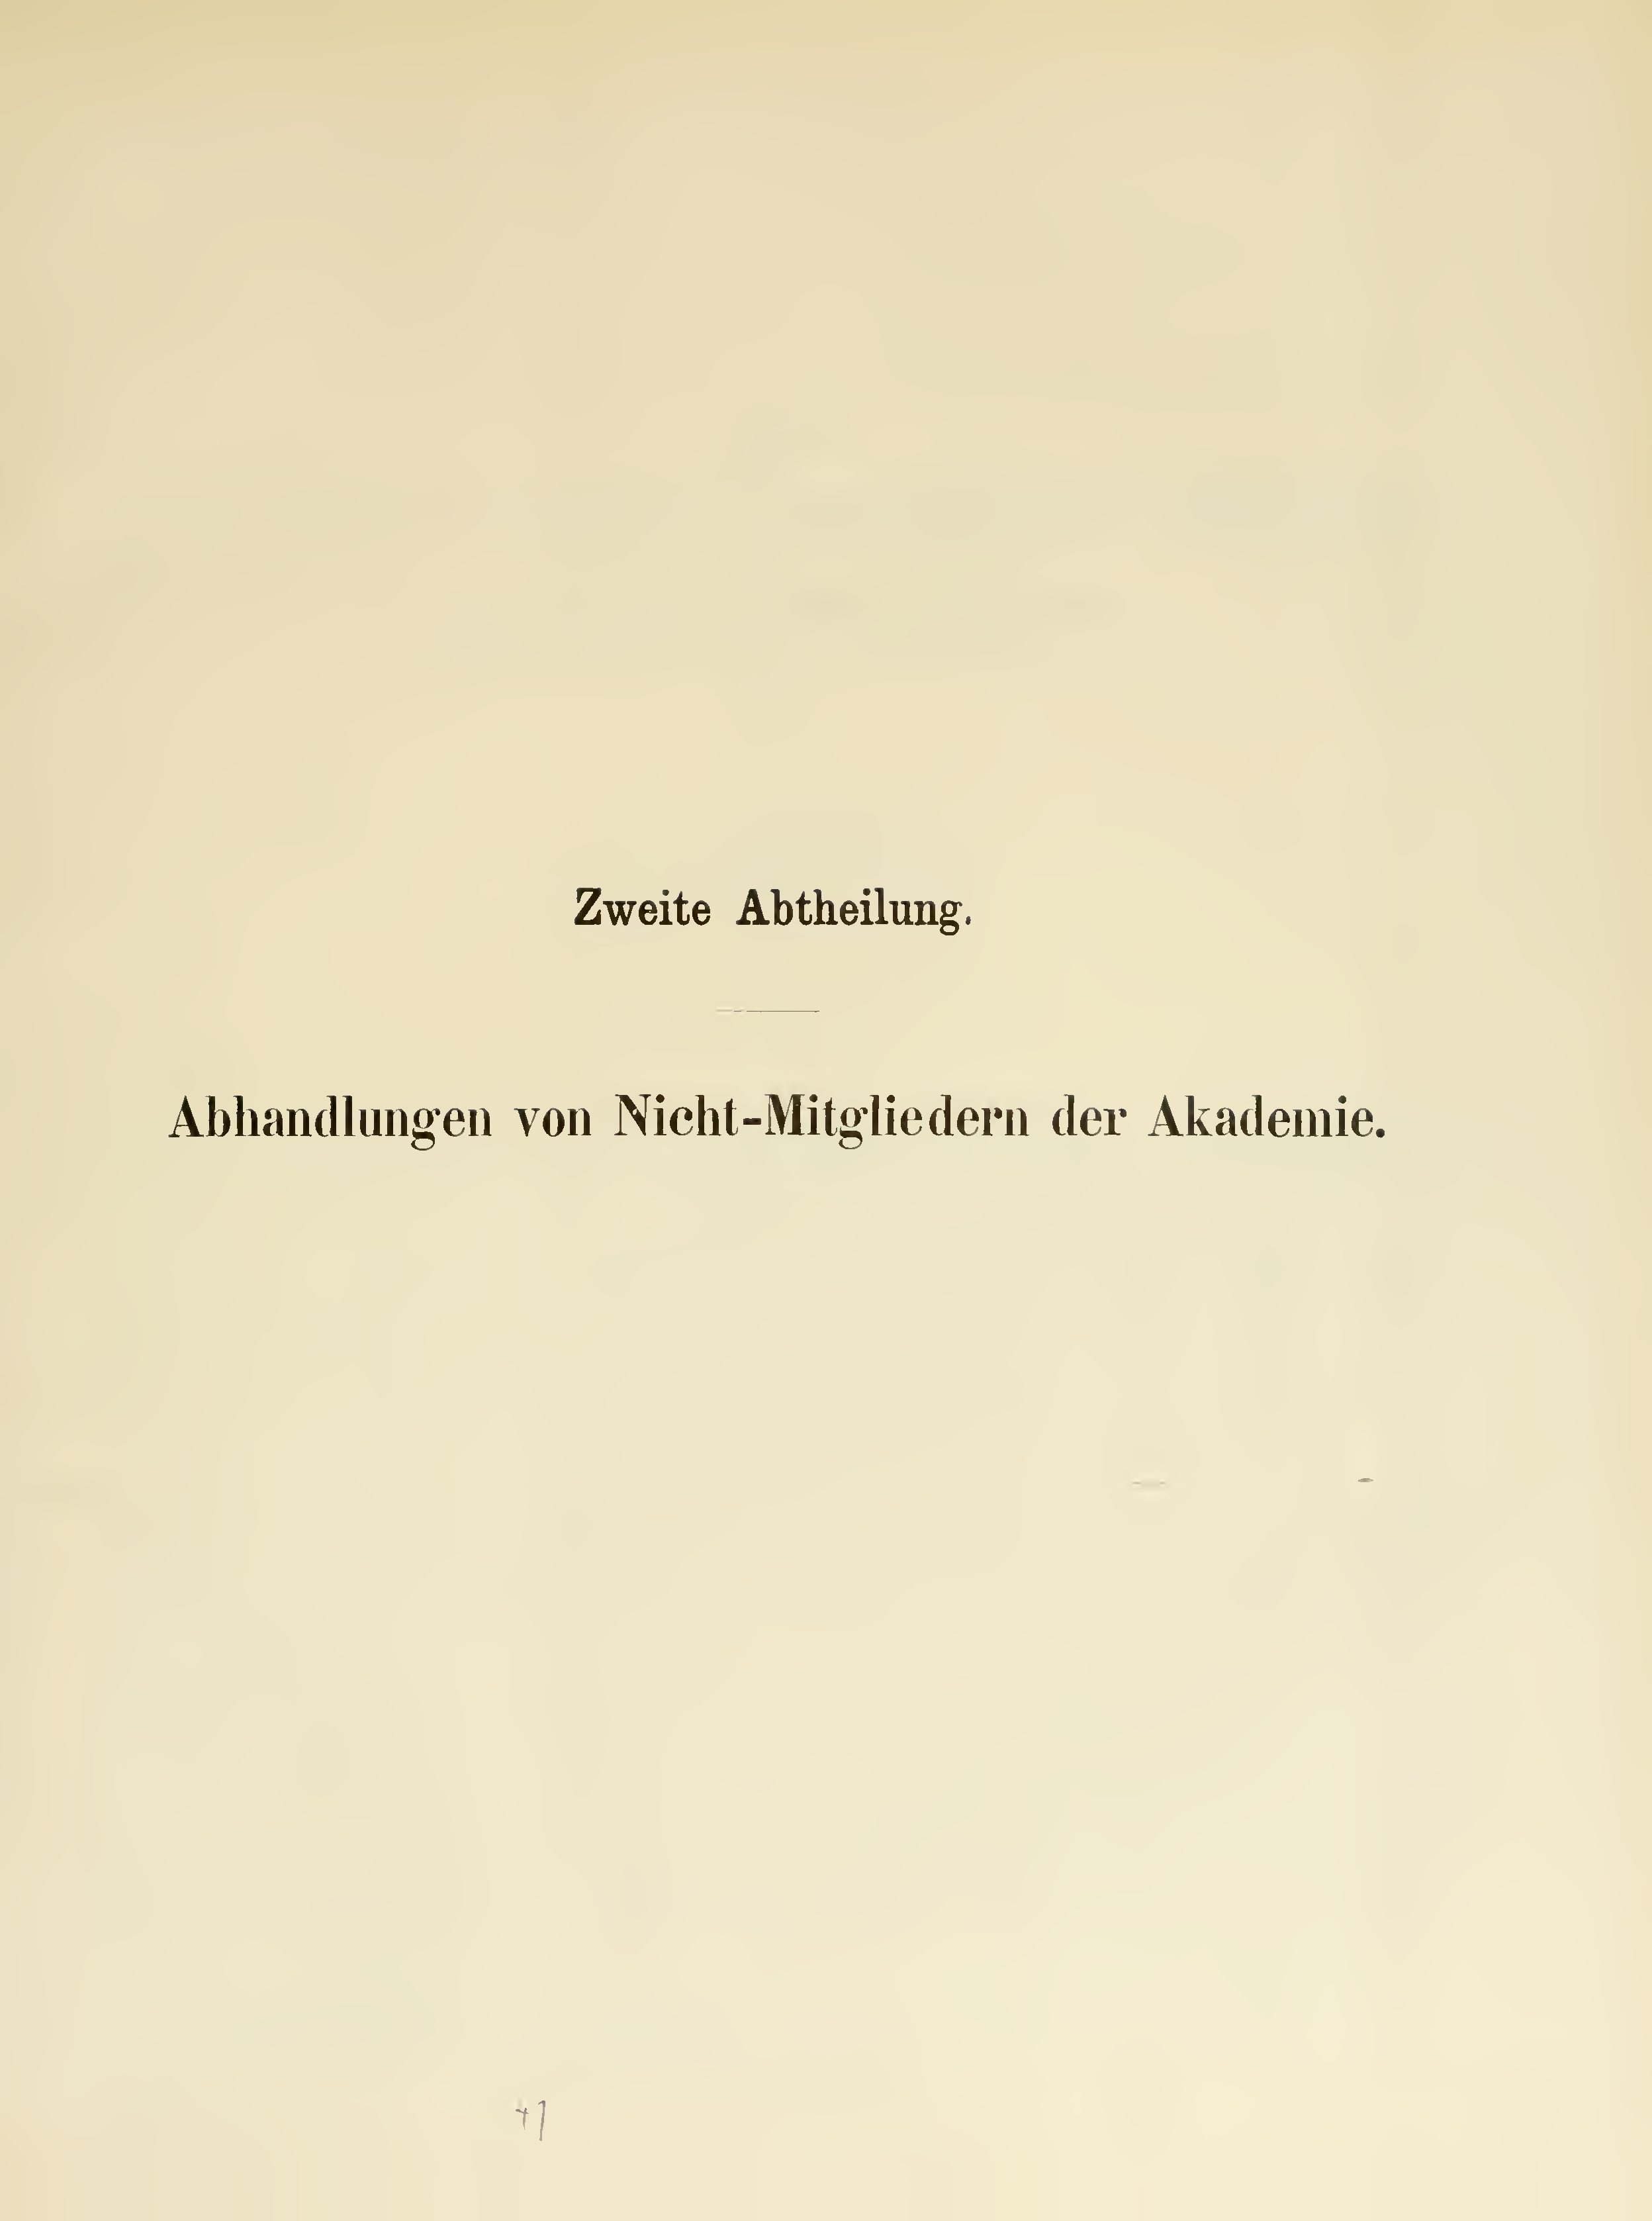 Zweite Abtheilung.
Abhandlungen von Nicht-Mitgliedern der Akademie.